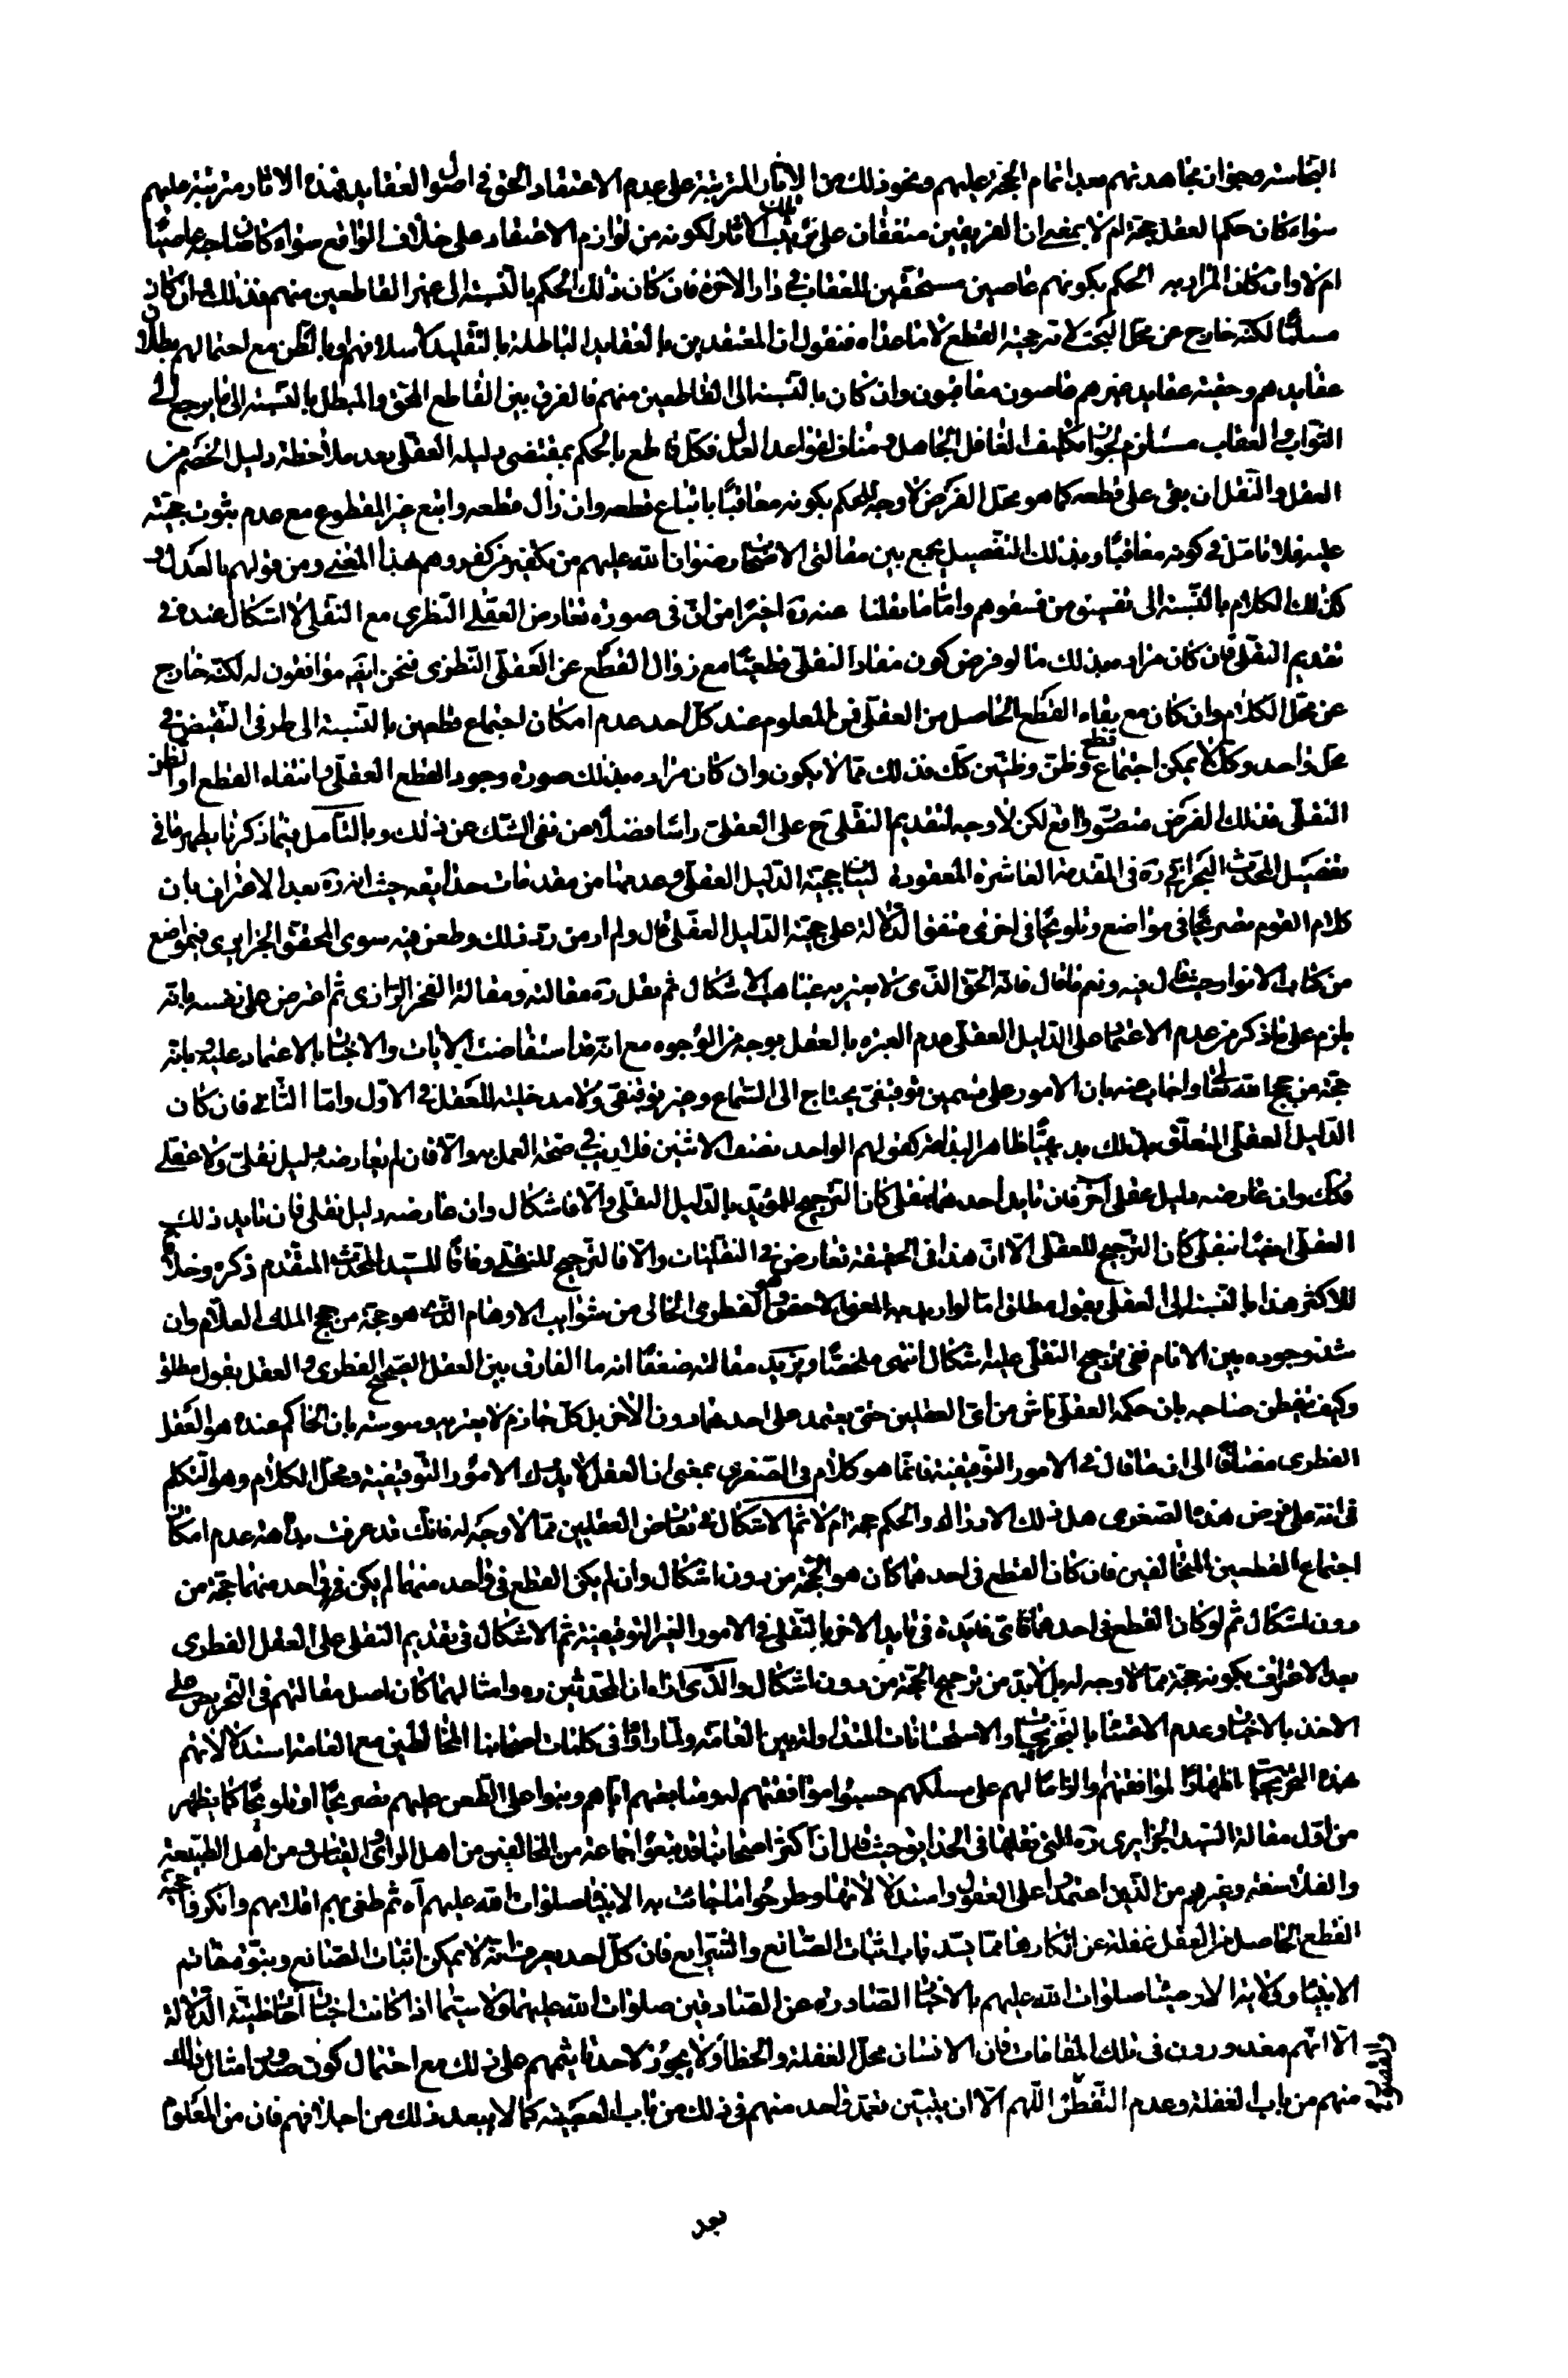 النجاسة وجواز مجاهدتهم بعد اتمام الحجة عليهم ونحو ذلك من الاثار المترتبة على عدم الاعتقاد الحق فى اصول العقايد فهذه الاثار مترتبة عليهم
سواء كان حكم العقل حجة ام لا بمعنى ان الفريقين متفقان على ترتيب تلك الاثار لكونه من لوازم الاعتقاد على خلاف الواقع سواء كان صاحبه عاصيًا
ام لا وان كان المراد به الحكم بكونهم عاصين مستحقين للعقاب فى دار الاخرة فان كان ذلك الحكم بالنسبة الى غير القاطعين منهم فذلك وان كان
مسلمًا لكنه خارج عن محل البحث لانه حجية القطع لا ما عداه فنقول ان المعتقدين بالعقايد الباطلة بالتقليد لأسلافهم او بالظن مع احتمالهم بطلان
عقايدهم وحقية عقايد غيرهم عاصون معاقبون وان كان بالنسبة الى القاطعين منهم فالفرق بين القاطع المحق والمبطل بالنسبة الى ما يرجع الى
الثواب والعقاب مستلزم لجواز تكليف الغافل الجاهل ومناف لقواعد العدل فكل قاطع بالحكم بمقتضى دليله العقلى بعد ملاحظة دليل الخصم من
العقل والنقل ان بقى على قطعه كما هو محل الفرض لا وجه للحكم بكونه معاقبًا باتباع قطعه وان زال قطعه واتبع غير المقطوع مع عدم ثبوت حجيته
عليه فلا تامل فى كونه معاقبًا وبذلك التفصيل يجمع بين مقالتى الاصحاب رضوان الله عليهم من تكفير من كفروهم هذا المعنى ومن قولهم بالعدل و
كذلك الكلام بالنسبة الى تفسيق من فسقوهم واما ما نقلنا عنه ره اخيرًا من ان فى صورة تعارض العقلى النظرى مع النقلى لا اشكال عنده فى
تقديم النقلى فان كان مراده بذلك ما لو فرض كون مفاد النقلى قطعيًا مع زوال القطع عن العقلى النظرى فنحن ايضا موافقون له لكنه خارج
عن محل الكلام وان كان مع بقاء القطع الحاصل من العقلى فمن المعلوم عند كل احد عدم امكان اجتماع قطعين بالنسبة الى طرفى النقيض فى
محل واحد وكذا لا يمكن اجتماع قطع وظن وظنين كك فذلك مما لا يكون وان كان مراده بذلك صورة وجود القطع العقلى وانتفاء القطع او الظن
النقلى فذلك الفرض متصور واقع لكن لا وجه لتقديم النقلى ح على العقلى راسًا فضلًا من نفى الشك عن ذلك وبالتأمل فيما ذكرنا يظهر ما فى
تفصيل المحدث البحرانى ره فى المقدمة العاشرة المعقودة لبيان حجية الدليل العقلى وعدمها من مقدمات حدايقه حيث انه ره بعد الاعتراف بان
كلام القوم تصريحًا فى مواضع وتلويحًا فى اخرى متفق الدلالة على حجية الدليل العقلى قال ولم ار من رد ذلك وطعن فيه سوى المحقق الجزايرى فى مواضع
من كتاب الانوار حيث قال فيه ونعم ما قال فانه الحق الذى لا يعتريه غياهب الاشكال ثم نقل ره مقالته ومقالة الفخر الرازى ثم اعترض على نفسه بانه
يلزم على ما ذكر من عدم الاعتماد على الدليل العقلى عدم العبرة بالعقل بوجه من الوجوه مع انه قد استفاضت الايات والاخبار بالاعتماد عليه وبانه
حجة من حجج الله تعالى واجاب عنه بان الامور على قسمين توقيفى يحتاج الى السماع وغير توقيفى ولا مدخلية للعقل فى الاول واما الثانى فان كان
الدليل العقلى المتعلق بذلك بديهيًا ظاهر البداهة كقولهم الواحد نصف الاثنين فلا ريب فى صحة العمل به والا فان لم يعارضه دليل نقلى ولا عقلى
فكك وان عارضه دليل عقلى آخر فان تايد احدهما بنقلى كان الترجيح للمؤيد بالدليل النقلى والا فاشكال وان عارضه دليل نقلى فان تايد ذلك
العقلى ايضًا بنقلى كان الترجيح للعقلى الا ان هذا فى الحقيقة تعارض فى النقليات والا فالترجيح للنقلى وفاقًا للسيد المحدث المتقدم ذكره وخلافًا
للاكثر هذا بالنسبة الى العقلى بقول مطلق اما لو اريد به المعنى الاخص وهو الفطرى الخالى من شوائب الاوهام الذى هو حجة من حجج الملك العلام وان
شذ وجوده بين الانام ففى ترجيح النقلى عليه اشكال انتهى ملخصًا ويزيد مقالته ضعفًا انه ما الفارق بين العقل الصحيح الفطرى والعقل بقول مطلق
وكيف يتفطن صاحبه بان حكمه العقلى ناش من اى العقلين حتى يعتمد على احدهما دون الاخر بل كل جازم لا يعتريه وسوسة بان الحاكم عنده هو العقل
الفطرى مضافًا الى ان ما قال فى الامور التوقيفية فانما هو كلام فى الصغرى بمعنى ان العقل لا يدرك الامور التوقيفية ومحل الكلام وهو التكلم
فى انه على فرض هذه الصغرى هل ذلك الادراك والحكم حجة ام لا ثم الاشكال فى تعارض العقليين مما لا وجه له فانك قد عرفت بداهة عدم امكان
اجتماع القطعين المتخالفين فان كان القطع فى احدهما كان هو الحجة من دون اشكال وان لم يكن القطع فى واحد منهما لم يكن فى واحد منهما حجة من
دون اشكال ثم لو كان القطع فى احدهما فاى فايدة فى تاييد الاخر بالنقلى فى الامور الغير التوقيفية ثم الاشكال فى تقديم النقلى على العقل الفطرى
بعد الاعتراف بكونه حجة مما لا وجه له بل لا بد من ترجيح الحجة من دون اشكال والذى اراه ان المحدثين ره وامثالهما كان اصل مقالتهم فى التحريص على
الاخذ بالاخبار وعدم الاعتناء بالتخريجات والاستحسانات المتداولة بين العامة ولما راوا فى كلمات اصحابنا المخالطين مع العامة استدلالاتهم
هذه التخريجات اظهارًا لموافقتهم والزامًا لهم على مسلكهم حسبوا موافقتهم لهم ومتابعتهم اياهم وبنوا على الطعن عليهم تصريحًا او تلويحًا كما يظهر
من اول مقالة السيد الجزايرى ره التى نقلها فى الحدايق حيث قال ان اكثر اصحابنا قد تبعوا جماعة من المخالفين من اهل الراى والقياس ومن اهل الطبيعة
والفلاسفة وغيرهم من الذين اعتمدوا على العقول واستدلالاتها وطرحوا ما جائت به الانبياء صلوات الله عليهم آه ثم طغى بهم اقلامهم وانكروا حجية
القطع الحاصل من العقل غفلة عن انكارها مما يسد باب اثبات الصانع والشرايع فان كل احد يعرف انه لا يمكن اثبات الصانع ونبوة مقاتم
الانبياء وولاية الاوصياء صلوات الله عليهم بالاخبار الصادرة عن الصادقين صلوات الله عليهما ولا سيما اذا كانت اخبار آحاد ظنية الدلالة
الا انهم معذورون فى تلك المقامات فان الانسان محل الغفلة والخطأ ولا يجوز لاحد تاثيمهم على ذلك مع احتمال كون صدور امثال ذلك
منهم من باب الغفلة وعدم التفطن اللهم الا ان يتبين تعمد واحد منهم فى ذلك من باب العصبية كما لا يبعد ذلك من اجلافهم فان من المعلوم
بعد